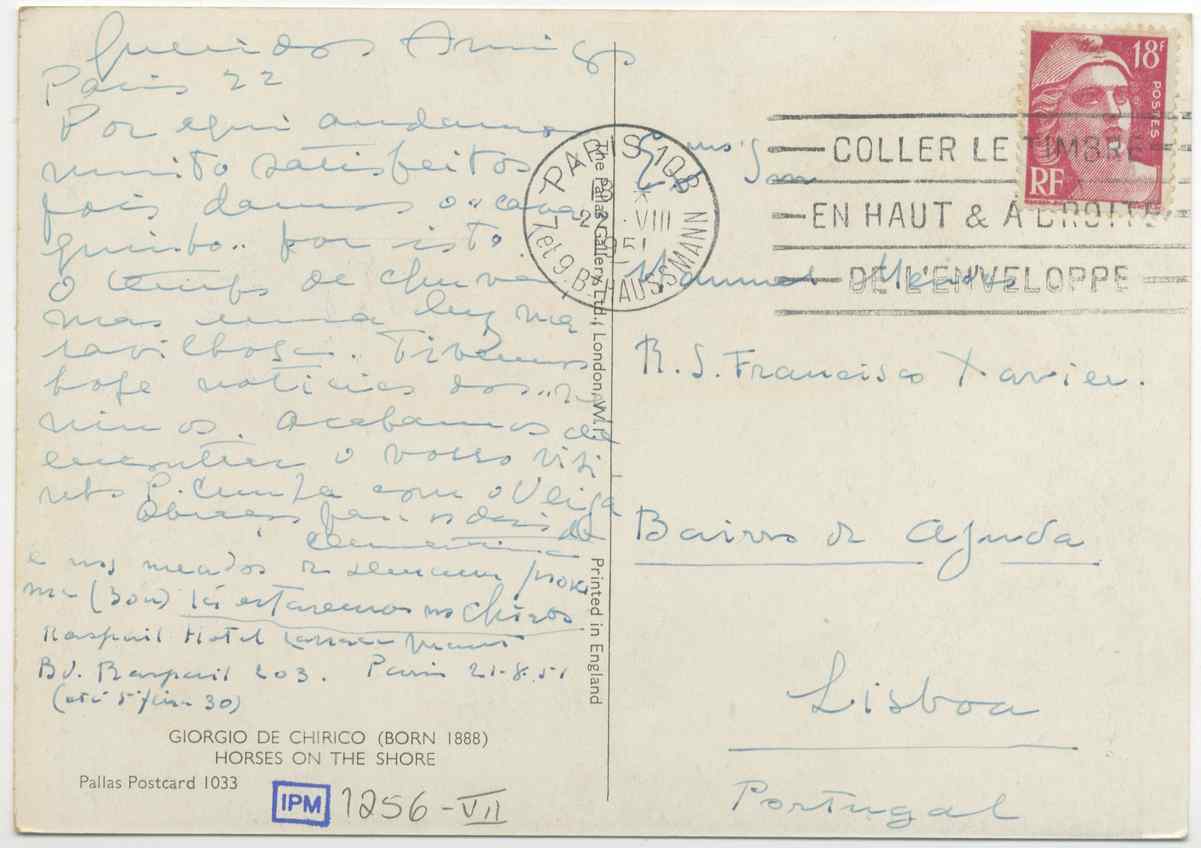 Queridos Amigos
Paris 22
Por aqui andamos
muito satisfeitos
pois damos o "cava
quinho" por isto.
O tempo de chuva,
mas uma luz ma
ravilhosa. Tivemos
hoje noticias dos "me
ninos. Acabamos de
encontrar o vosso visi
nho P. Cunha com o Veiga
Abraços para os dois de
Clementina
e nos meados da semana proxi
ma (30 ou) lá estaremos no Chiros
Raspail Hotel
Bd. Raspail 203. Paris 21-8-51
(até 5ª feira 30)
GIORGIO DE CHIRICO (BORN 1888)
HORSES ON THE SHORE
Pallas Postcard 1033
IPM 1256-VII
The Pallas Gallery Ltd., London, W.1.
Printed in England
PARIS 108
VIII
7 et 9. Bd HAUSSMANN
COLLER LE TIMBRE
EN HAUT & A DROITE
DE L'ENVELOPPE
18F
POSTES
RF
Manuel Mendes
R. S. Francisco Xavier.
Bairro da Ajuda
Lisboa
Portugal